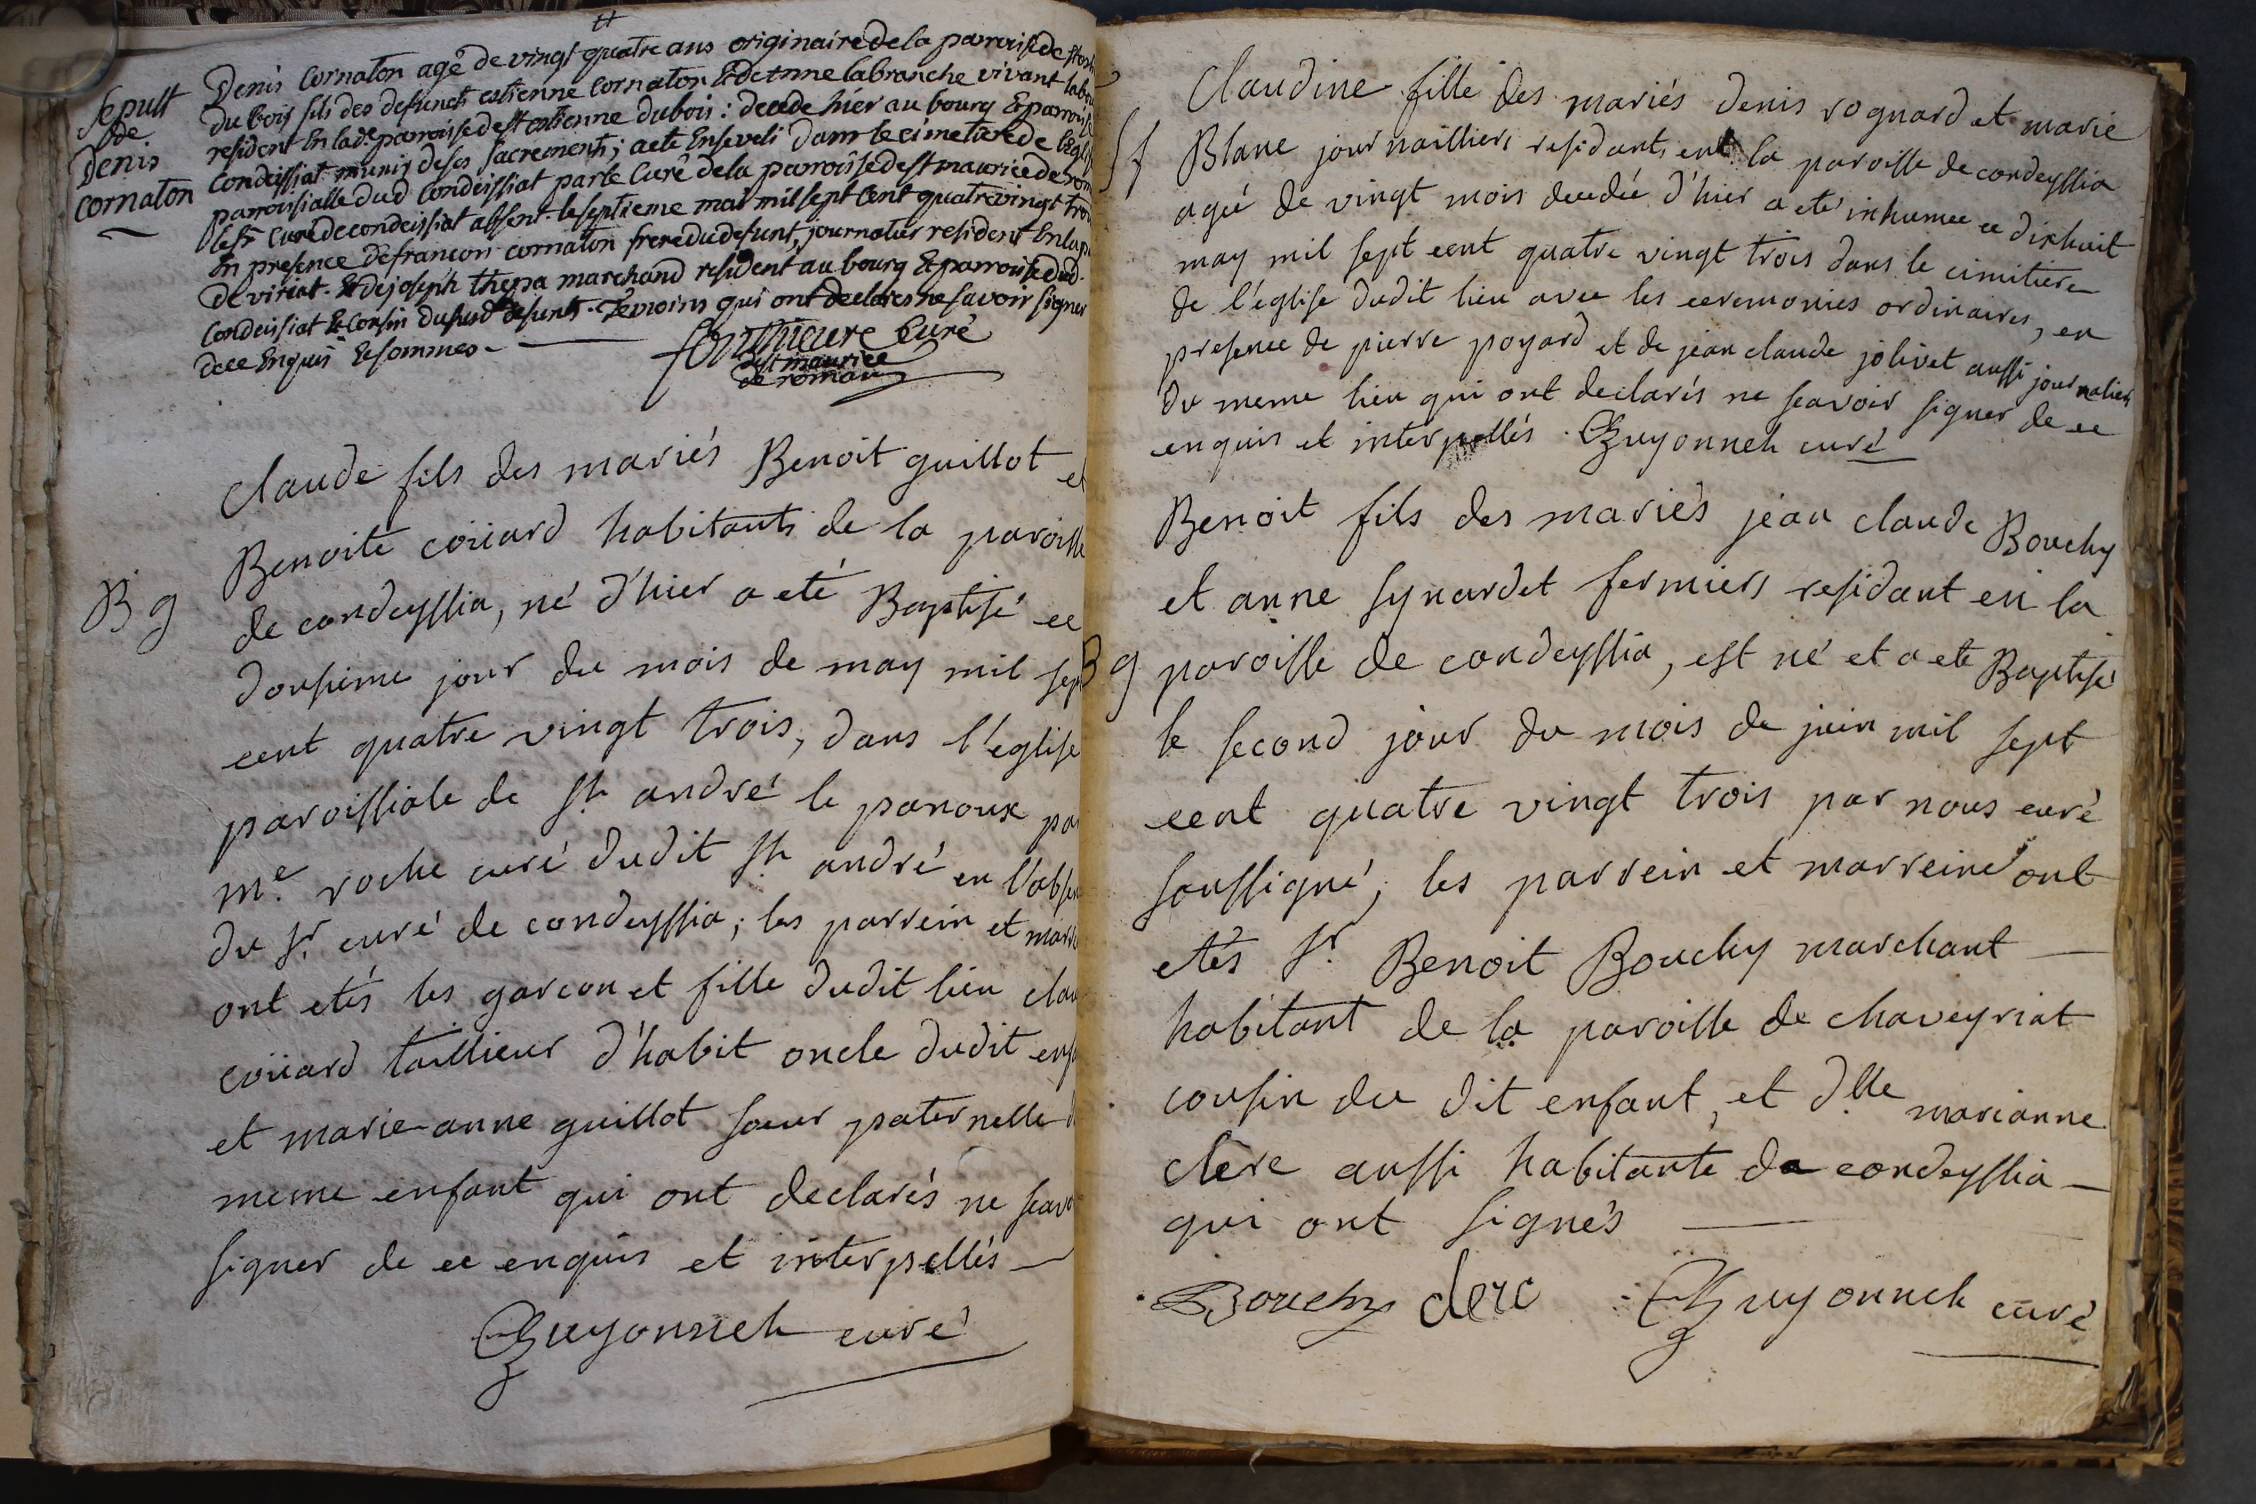 tt
Sepult
de
Denis
cornaton
Denis cornaton agé de vingt quatre ans originaire de la parroisse de st
du bois fils des defuncts estienne cornaton & detnne labranche vivant labou
resident en lad.e parroisse de st estienne du bois : decede hier au bourg & parroisse
condeissiat munis de ses sacrements ; a ete enseveli dans le cimetiere de l'egli
parroissialle dud condeissiat par le curé de la parroisse de st maurice de rom
le sr curé de condeissiat absent. le septieme mai mil sept cent quatre vingt troi
en presence de francois cornaton frere du defunt, journalier resident en la p
de viriat. & de joseph thepa marchand resident au bourg & parroisse dud.
condeissiat & cousin du susd defunt. temoins qui ont declarés ne savoir signer
de ce enquis & sommes
curé
de st maurice
de roman
claude fils des mariés Benoit guillot et
Benoite coüard habitants de la paroisse
B g
de condeyssia, né d'hier a eté Baptisé ce
dousieme jour du mois de may mil sept
cent quatre vingt trois, dans l'eglise
paroissiale de st andré le panoux par
me. roche curé dudit st andré en l'absen
du sr curé de condeyssia ; les parrein et marr
ont etés les garcon et fille dudit lieu clau
coüard taillieur d'habit oncle dudit enfa
et marie anne guillot soeur paternelle d
meme enfant qui ont declarés ne scavo
signer de ce enquis et interpellés
Guyonneh curé
Claudine fille des mariés denis roguard et marie
S f
Blanc journailliers residants en la paroisse de condeyssia
agée de vingt mois decedée d'hier a eté inhumee ce dixhuit
may mil sept cent quatre vingt trois dans le cimitiere
de l'eglise dudit lieu avec les ceremonies ordinaires, en
presence de pierre poyard et de jean claude jolivet aussi journaliers
du meme lieu qui ont declarés ne scavoir signer de ce
enquis et interpellés . Guyonneh curé
Benoit fils des mariés jean claude Bouchy
et anne synardet fermiers residant en la
B g
paroisse de condeyssia, est né et a ete Baptisé
le second jour du mois de juin mil sept
cent quatre vingt trois par nous curé
soussigné, les parrein et marreine ont
etés sr Benoit Bouchy marchant
habitant de la paroisse de chaveyriat
cousin du dit enfant, et dlle marianne
clerc aussi habitante de condeyssia
qui ont signés
Bouchy clerc Guyonneh curé